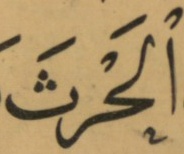 ٱلْحَرْثَ